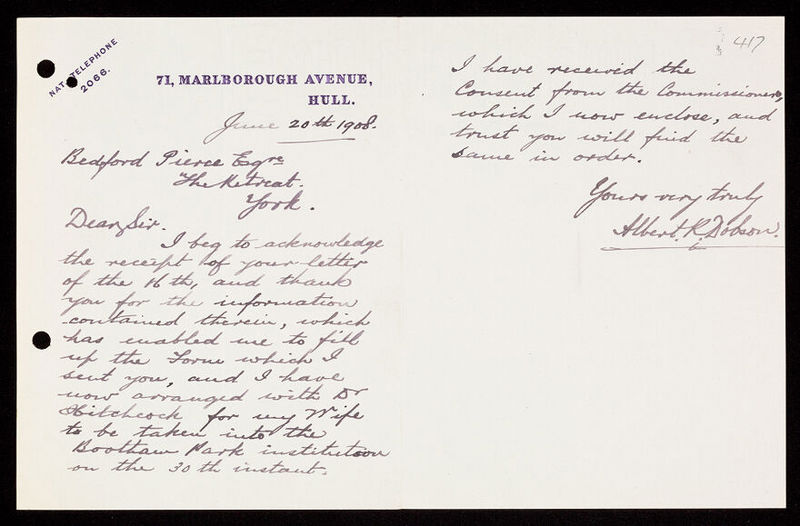 NAT. TELEPHONE
2066.
71, MARLBOROUGH AVENUE,
HULL.
June 20th 1908.
Bedford Pierce Esqre
The Retreat.
York.
Dear Sir.
I beg to acknowledge
the receipt of your letter
of the 16th, and thank
you for the information
contained therein, which
has enabled me to fill
up the Form which I
sent you, and I have
now arranged with Dr
Hitchcock for my Wife
to be taken into the
Bootham Park institution
on the 30th instant.
417
I have received the
Consent from the Commissioners,
which I now enclose, and
trust you will find the
same in order.
Yours very truly
Albert. R. Dobson.